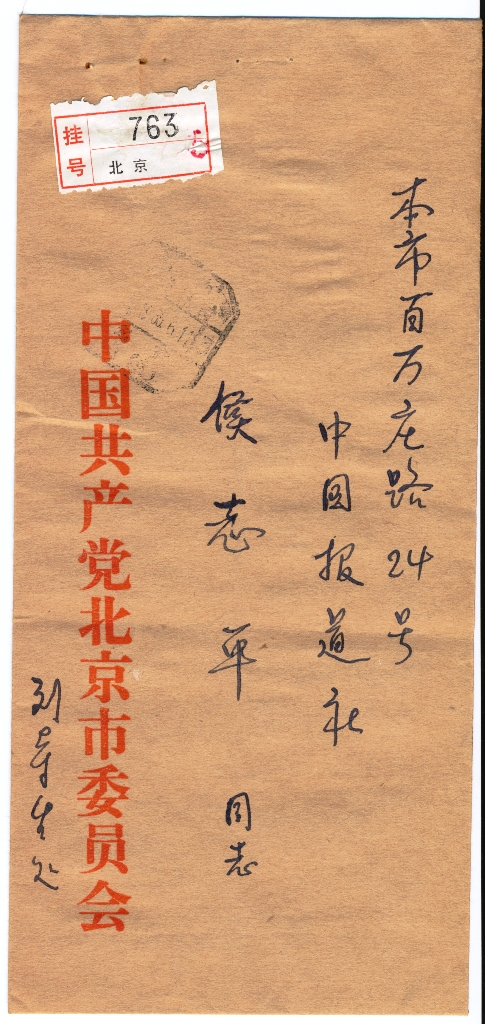 挂号 763
北京
本市百万庄路24号
中国报道社
侯志平 同志
中国共产党北京市委员会